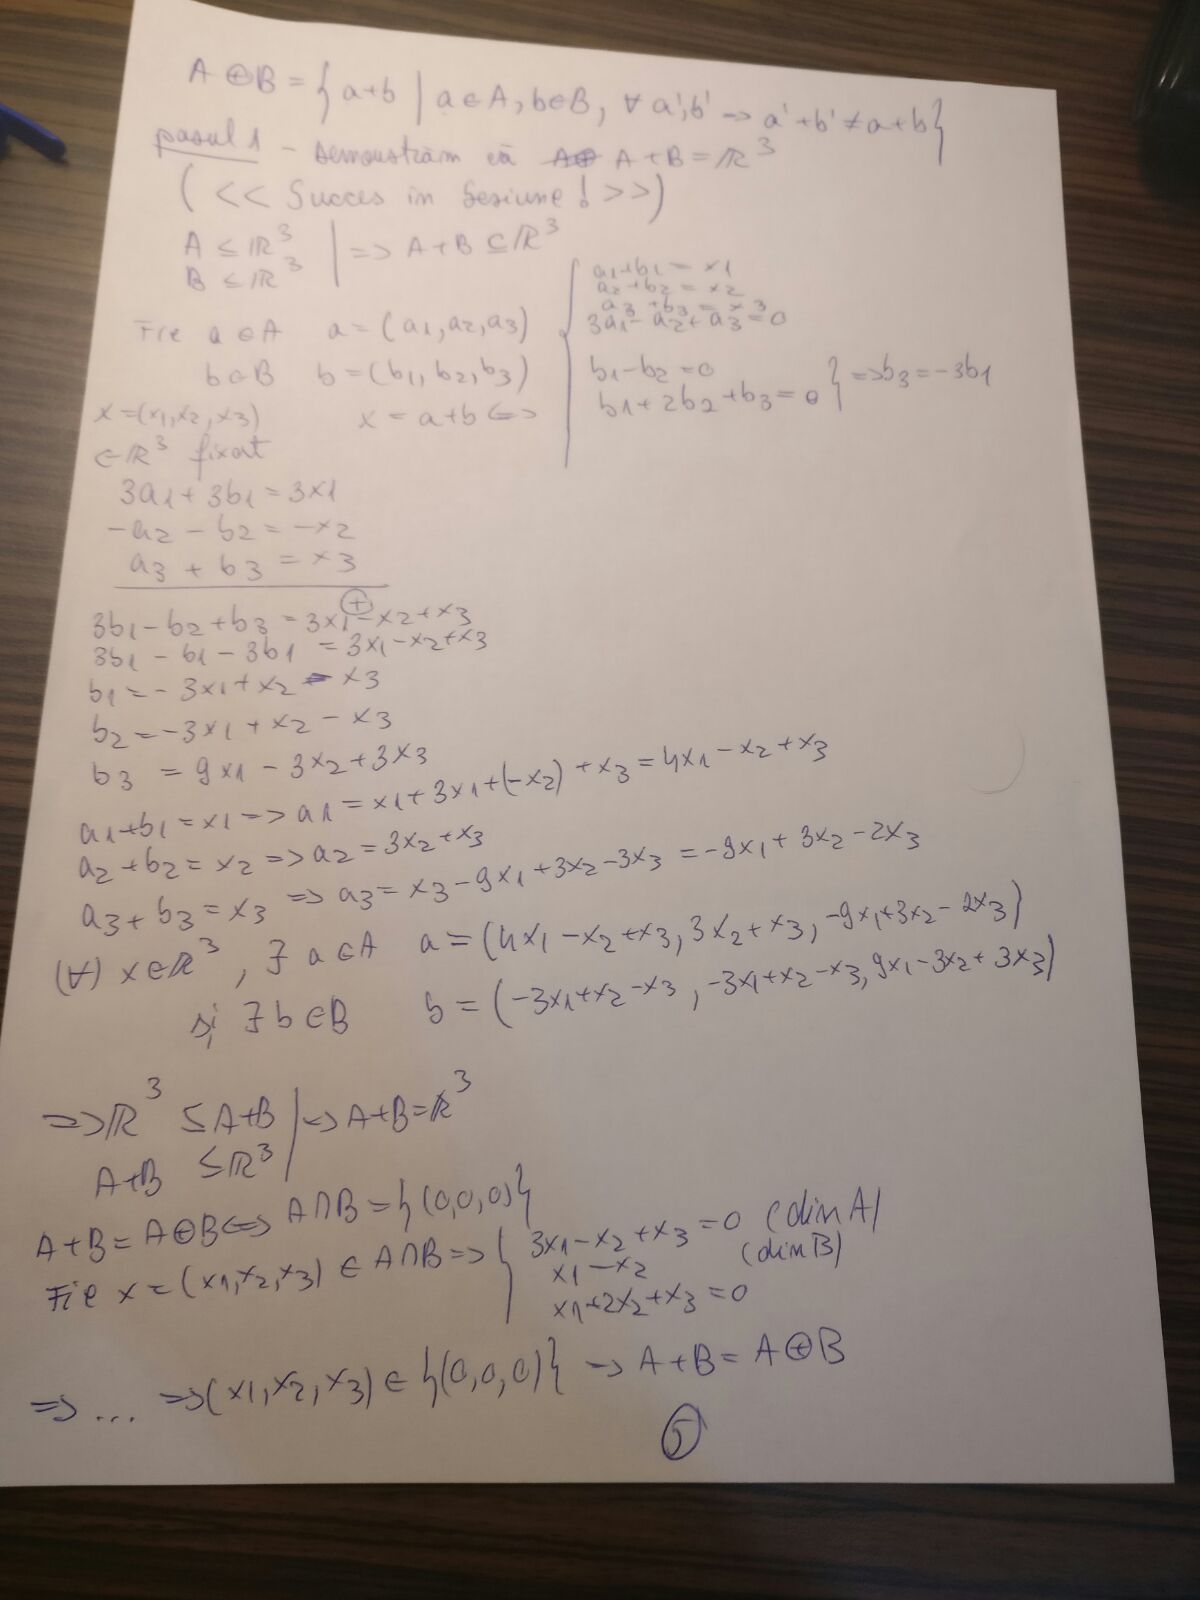 A ⊕ B = { a+b | a∈A, b∈B, ∀ a', b' → a'+b' ≠ a+b }
pasul 1 - demonstrăm că A+B = ℝ³
( << Succes in Sesiune! >> )
A ≤ ℝ³
B ≤ ℝ³ | => A+B ⊆ ℝ³
a1+b1 = x1
a2+b2 = x2
a3+b3 = x3
3a1-a2+a3 = 0
b1-b2 = 0
b1+2b2+b3 = 0 } => b3 = -3b1
Fie a∈A a = (a1, a2, a3)
b∈B b = (b1, b2, b3)
x = (x1, x2, x3) x = a+b <=>
∈ℝ³ fixat
3a1+3b1 = 3x1
-a2-b2 = -x2
a3+b3 = x3
(+)
3b1-b2+b3 = 3x1-x2+x3
3b1-b1-3b1 = 3x1-x2+x3
b1 = -3x1+x2-x3
b2 = -3x1+x2-x3
b3 = 9x1-3x2+3x3
a1+b1 = x1 => a1 = x1+3x1+(-x2)+x3 = 4x1-x2+x3
a2+b2 = x2 => a2 = 3x2+x3
a3+b3 = x3 => a3 = x3-9x1+3x2-3x3 = -9x1+3x2-2x3
(∀) x∈ℝ³, ∃ a∈A a = (4x1-x2+x3, 3x2+x3, -9x1+3x2-2x3)
și ∃ b∈B b = (-3x1+x2-x3, -3x1+x2-x3, 9x1-3x2+3x3)
=> ℝ³ ≤ A+B
A+B ≤ ℝ³ | => A+B = ℝ³
A+B = A⊕B <=> A∩B = {(0,0,0)}
Fie x = (x1, x2, x3) ∈ A∩B => { 3x1-x2+x3 = 0 (din A)
x1-x2 (din B)
x1+2x2+x3 = 0
=> ... => (x1, x2, x3) ∈ {(0,0,0)} => A+B = A⊕B
5